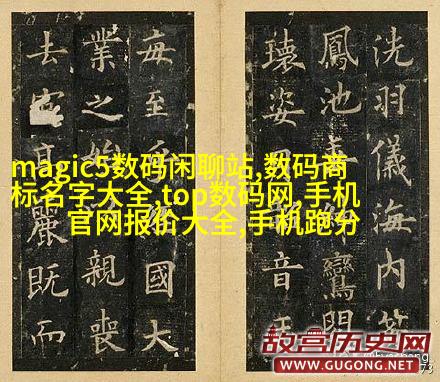 洗羽儀海内
鳳池鸞閣
瓌姿音
毎至國大
業之親喪
去麗既而
magic5数码闲聊站,数码商
标名字大全,top数码网,手机
官网报价大全,手机跑分
故宫历史网
WWW.GUGONG.NET
73